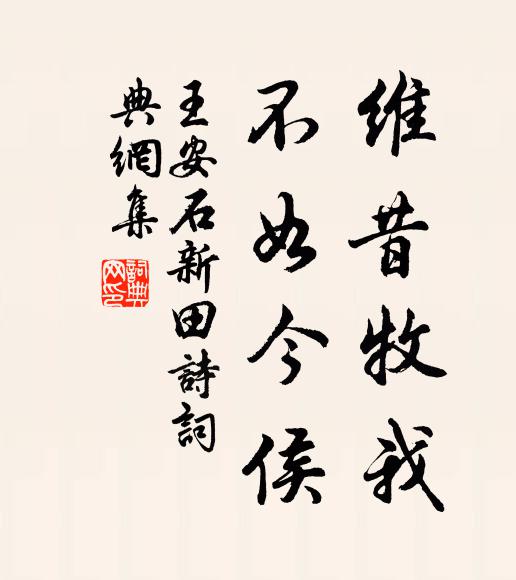 維昔牧我
不如今侯
王安石新田詩詞
典網集
詞典
网印